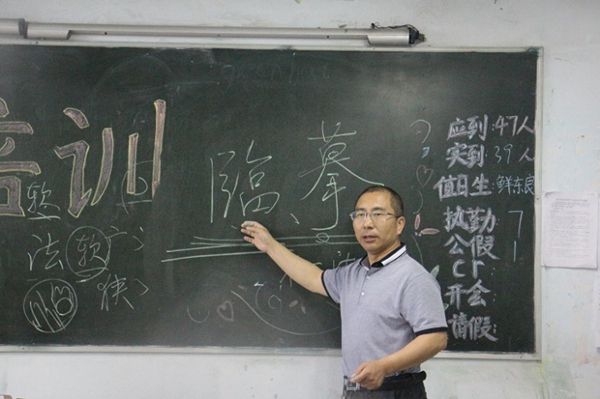 培训
临、摹
软
法 软
快
应到:47人
实到:39人
值日生:鲜东良
执勤 7
公假 1
CT
开会:
请假: